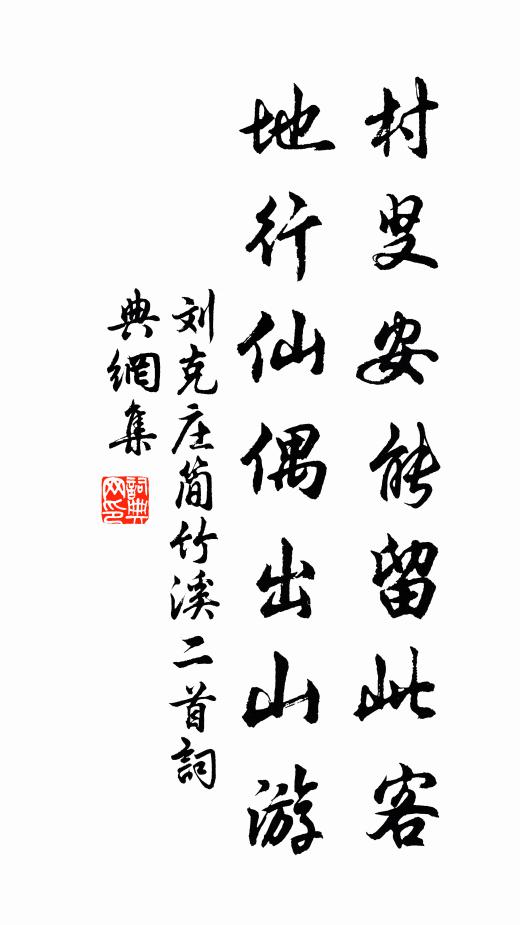 村叟安能留此客
地行仙偶出山游
刘克庄简竹溪二首詞
典網集
詞典网印